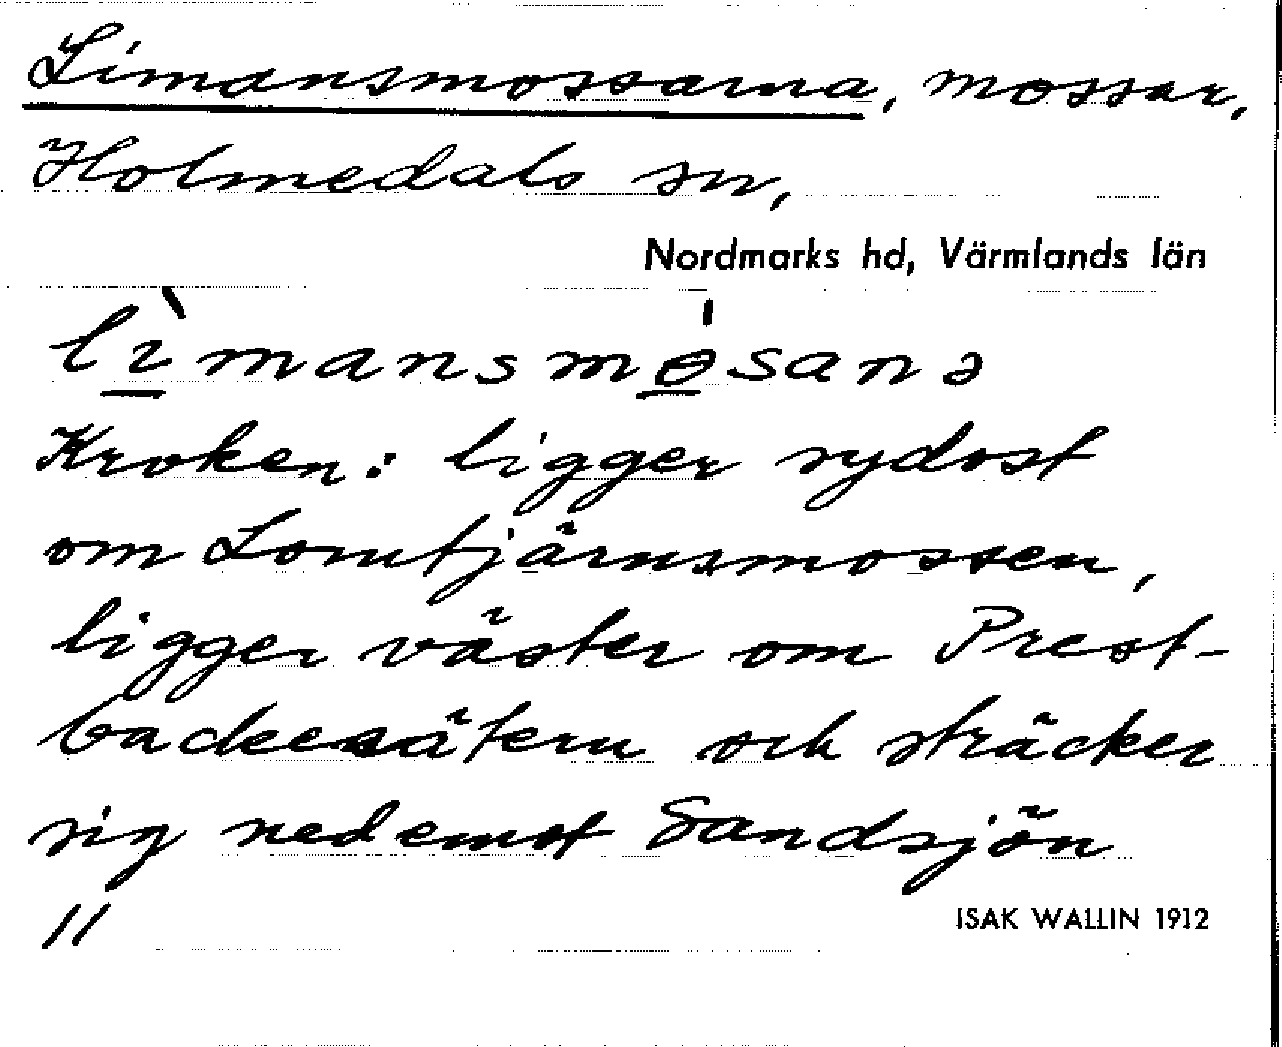 Limansmossarna, mossar,
Holmedals sn,
Nordmarks hd, Värmlands län
lìmansmo̱sanə
Kroken: ligger sydost
om Lomtjärnsmossen,
ligger väster om Prest-
backesätern och sträcker
sig nedemot Sandsjön
11
ISAK WALLIN 1912